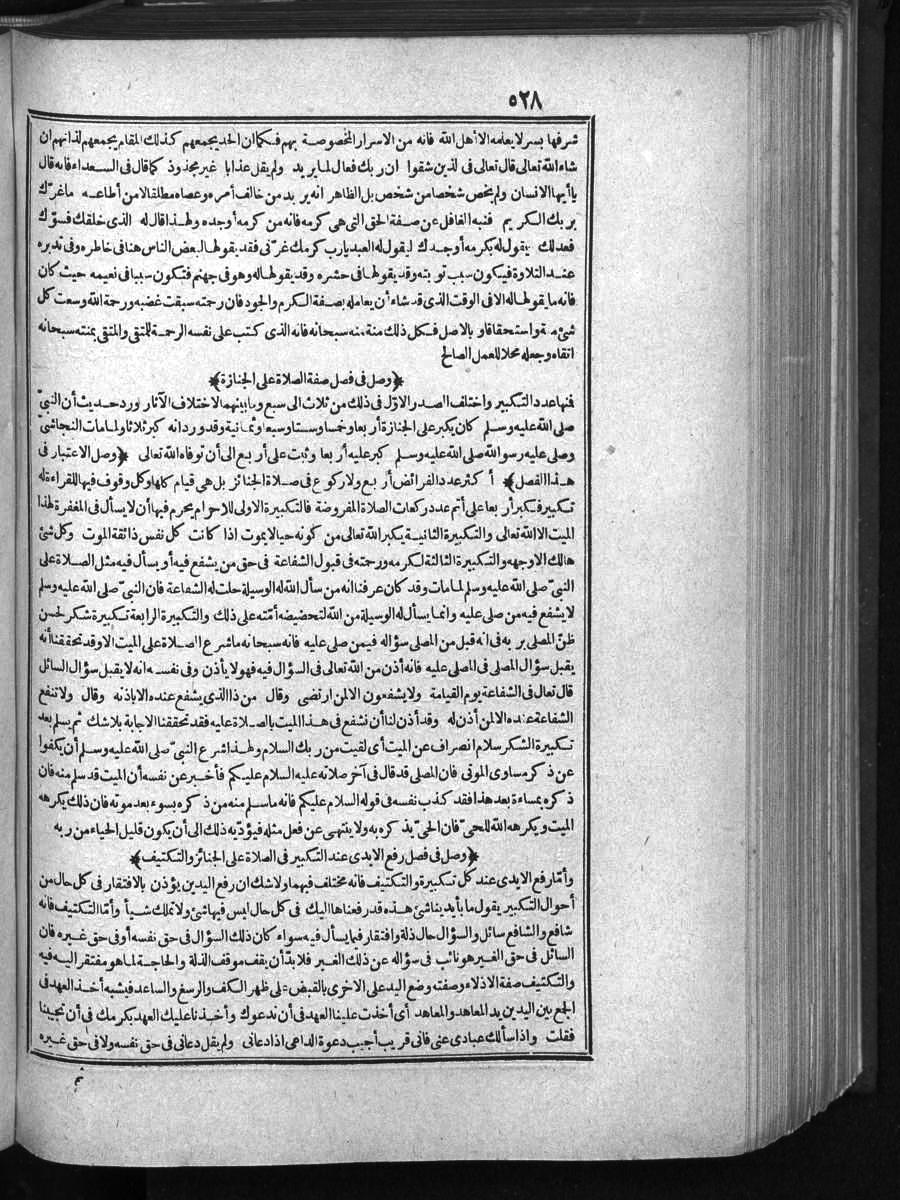 ٥٢٨
شرفها بسر لا يعلمه الا أهل الله فانه من الاسرار المخصوصة بهم فكما ان الحد يجمعهم كذلك المقام يجمعهم لذاتهم ان
شاء الله تعالى قال تعالى فى لذين شقوا ان ربك فعال لما يريد ولم يقل عذابا غير مجذوذ كما قال فى السعداء فانه قال
يا أيها الانسان ولم يخص شخصا من شخص بل الظاهر انه يريد من خالف أمره وعصاه مطلقا لا من أطاعه ما غرّك
بربك الكريم فنبه الغافل عن صفة الحق التى هى كرمه فانه من كرمه أوجده ولهذا قال له الذى خلقك فسوّك
فعدلك يقول له بكرمه أوجدك ليقول له العبد يارب كرمك غرّنى فقد يقولها لبعض الناس هنا فى خاطره وفى تدبره
عند التلاوة فيكون سبب توبته وقد يقولها فى حشره وقد يقولها له وهو فى جهنم فتكون سببا فى نعيمه حيث كان
فانه ما يقولها له الا فى الوقت الذى قد شاء أن يعامله بصفة الكرم والجود فان رحمته سبقت غضبه ورحمة الله وسعت كل
شئ منة واستحقاقا وبالاصل فكل ذلك منة منه سبحانه فانه الذى كتب على نفسه الرحمة للمتقى والمتقى بمنته سبحانه
اتقاه وجعله محلا للعمل الصالح
﴿وصل فى فصل صفة الصلاة على الجنازة﴾
فنها عدد التكبير واختلف الصدر الاوّل فى ذلك من ثلاث الى سبع وما بينهما لاختلاف الآثار ورد حديث أن النبىّ
صلى الله عليه وسلم كان يكبر على الجنازة أربعا وخمسا وستا وسبعا وثمانية وقد ورد انه كبر ثلاثا ولما مات النجاشىّ
وصلى عليه رسول الله صلى الله عليه وسلم كبر عليه أربعا وثبت على أربع الى أن توفاه الله تعالى ﴿وصل الاعتبار فى
هذا الفصل﴾ أكثر عدد الفرائض أربع ولا ركوع فى صلاة الجنائز بل هى قيام كلها وكل وقوف فيها للقراءة له
تكبيرة فكبر أربعا على أتم عدد ركعات الصلاة المفروضة فالتكبيرة الاولى للاحرام يحرم فيها أن لا يسأل فى المغفرة لهذا
الميت الا الله تعالى والتكبيرة الثانية يكبر الله تعالى من كونه حيا لا يموت اذا كانت كل نفس ذائقة الموت وكل شئ
هالك الا وجهه والتكبيرة الثالثة لكرمه ورحمته فى قبول الشفاعة فى حق من يشفع فيه أو يسأل فيه مثل الصلاة على
النبىّ صلى الله عليه وسلم لما مات وقد كان عرفنا انه من سأل الله له الوسيلة حلت له الشفاعة فان النبىّ صلى الله عليه وسلم
لا يشفع فيه من صلى عليه وانما يسأل له الوسيلة من الله لتحضيضه أمّته على ذلك والتكبيرة الرابعة تكبيرة شكر لحسن
ظنّ المصلى بربه فى انه قبل من المصلى سؤاله فيمن صلى عليه فانه سبحانه ما شرع الصلاة على الميت الا وقد تحققنا أنه
يقبل سؤال المصلى فى المصلى عليه فانه أذن من الله تعالى فى السؤال فيه فهو لا يأذن وفى نفسه انه لا يقبل سؤال السائل
قال تعالى فى الشفاعة يوم القيامة ولا يشفعون الا لمن ارتضى وقال من ذا الذى يشفع عنده الا باذنه وقال ولا تنفع
الشفاعة عنده الا لمن أذن له وقد أذن لنا أن نشفع فى هذا الميت بالصلاة عليه فقد تحققنا الاجابة بلا شك ثم يسلم بعد
تكبيرة الشكر سلام انصراف عن الميت أى لقيت من ربك السلام ولهذا شرع النبىّ صلى الله عليه وسلم أن يكفوا
عن ذكر مساوى الموتى فان المصلى قد قال فى آخر صلاته عليه السلام عليكم فأخبر عن نفسه أن الميت قد سلم منه فان
ذكره بمساءة بعد هذا فقد كذب نفسه فى قوله السلام عليكم فانه ما سلم منه من ذكره بسوء بعد موته فان ذلك يكرهه
الميت ويكرهه الله للحىّ فان الحىّ يذكره به ولا ينتهى عن فعل مثله فيؤدّيه ذلك الى أن يكون قليل الحياء من ربه
﴿وصل فى فصل رفع الايدى عند التكبير فى الصلاة على الجنائز والتكتيف﴾
وأمّا رفع الايدى عند كل تكبيرة والتكتيف فانه مختلف فيهما ولا شك ان رفع اليدين يؤذن بالافتقار فى كل حال من
أحوال التكبير يقول ما بأيدينا شئ هذه قد رفعناها اليك فى كل حال ليس فيها شئ ولا تملك شيأ وأمّا التكتيف فانه
شافع والشافع سائل والسؤال حال ذلة وافتقار فيما يسأل فيه سواء كان ذلك السؤال فى حق نفسه أو فى حق غيره فان
السائل فى حق الغير هو نائب فى سؤاله عن ذلك الغير فلا بدّ أن يقف موقف الذلة والحاجة لما هو مفتقر اليه فيه
والتكتيف صفة الاذلاء وصفته وضع اليد على الاخرى بالقبض على ظهر الكف والرسغ والساعد فيشبه أخذ العهد فى
الجمع بين اليدين يد المعاهد والمعاهد أى أخذت علينا العهد فى أن ندعوك وأخذنا عليك العهد بكرمك فى أن تجيبنا
فقلت واذا سألك عبادى عنى فانى قريب أجيب دعوة الداعى اذا دعانى ولم يقل دعانى فى حق نفسه ولا فى حق غيره
ثم